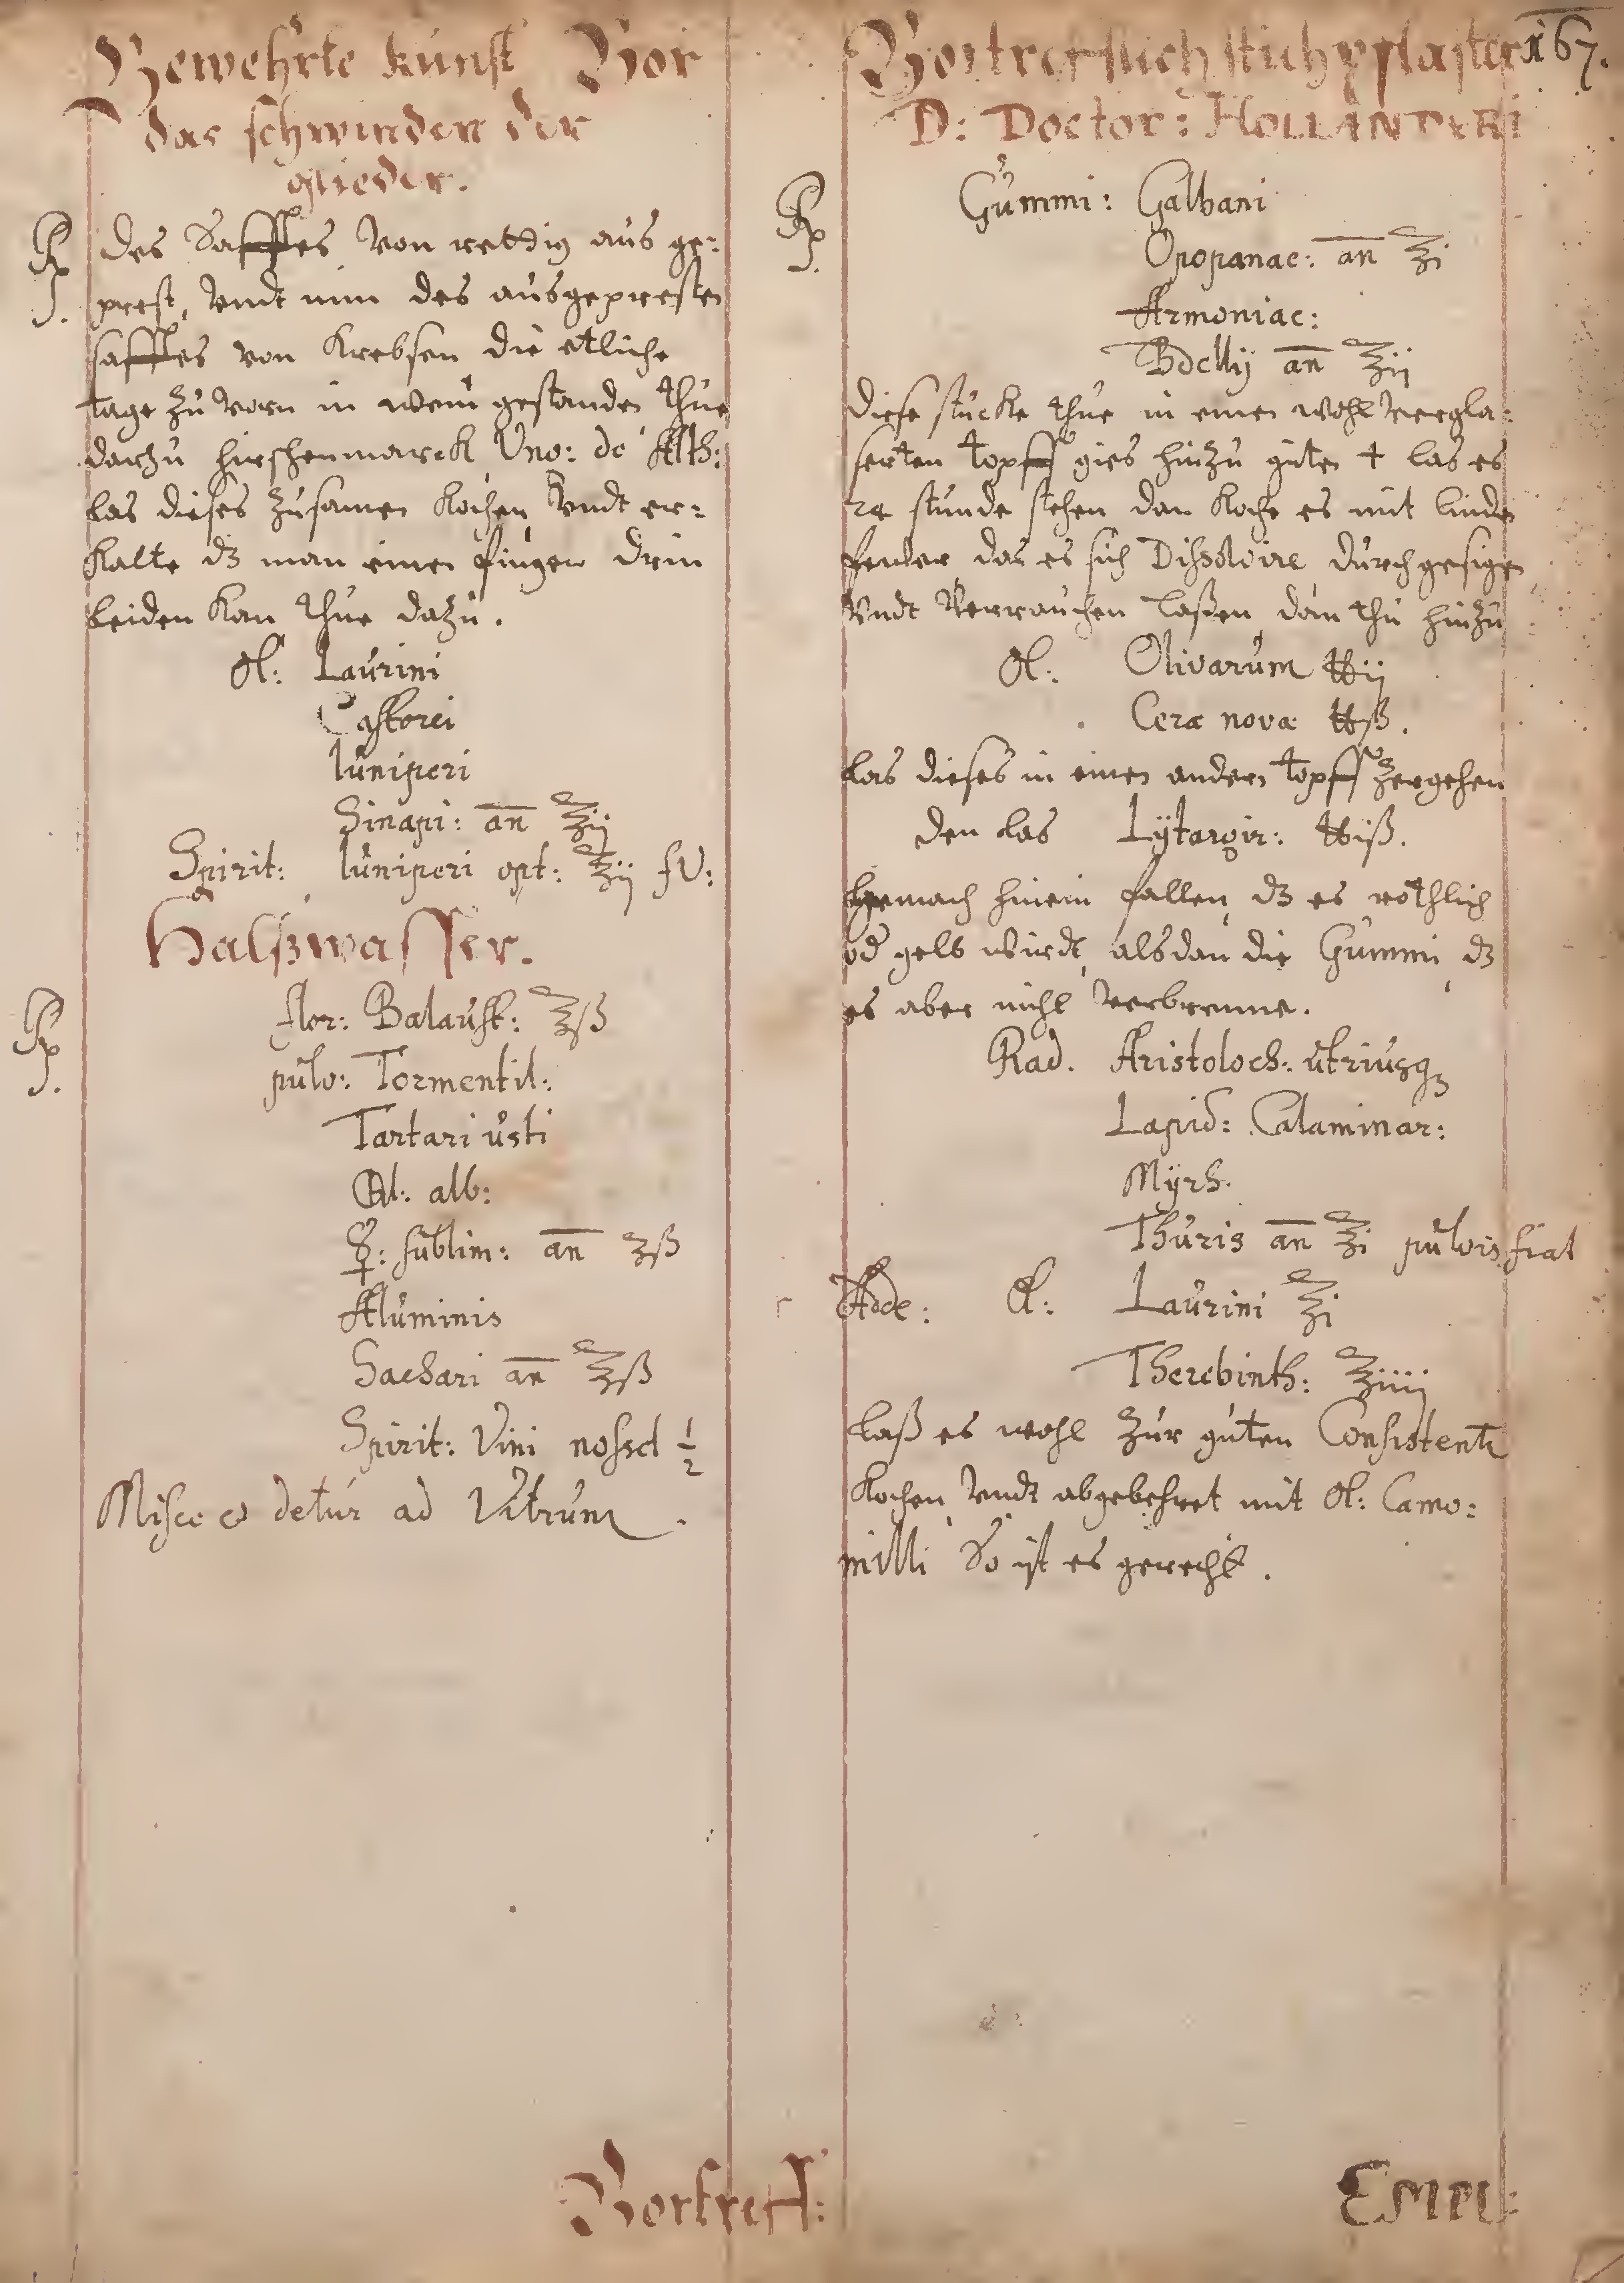 Bewehrte kunst Vor
das schwinden der
glieder.
Rp. des Safftes von rettig aus ge-
prest, undt nim des ausgepresten
safftes von Krebsen die etliche
tage zu vorn in wein gestanden thue
darzu hirschenmarck Vno: de Alth:
las dieses zusamen kochen undt er-
kalte dz man einen finger drin
leiden kan thue dazu.
Ol: Laurini
Castorei
Iuniperi
Sinapi: an ℥ij
Spirit: Iuniperi opt: ℥ij fV:
Halßwasser.
Rp. flor: Balaust: ℥ß
pulv: Tormentil:
Tartari usti
alb:
☿: sublim: an ʒß
Aluminis
Sachari an ℥ß
Spirit: Vini nossel ½
Misce & detur ad Vitrum.
Vortreff:
167.
Vortrefflich stichpflaster
D: Doctor: HOLLANDERI
Rp. Gummi: Galbani
Opopanac: an ℥i
Armoniac:
Bdellij an ℥ij
diese stucke thue in einen wohl vergla-
serten topff gies hinzu guten + las es
24 stunde stehen dan koche es mit linden
feuer das es sich Dissolvire durchgesigen
undt verrauchen laßen dan thu hinzu
Ol: Olivarum ℔ij
Ceræ novæ ℔ß.
las dieses in einen andern topff zergehen
den las Lÿtargir: ℔iß.
gemach hinein fallen dz es röthlich
od gelb wirdt, alsdan die Gummi, dz
es aber nicht verbrenne.
Rad. Aristoloch: utriusqꝫ
Lapid: Calaminar:
Mÿrh.
Thuris an ℥i pulvis fiat
Adde: Ol: Laurini ℥i
Therebinth: ℥iiij
laß es wohl zur guten Consistenti
kochen undt abgebehret mit Ol: Camo:
milli So ist es gerecht.
Empl: